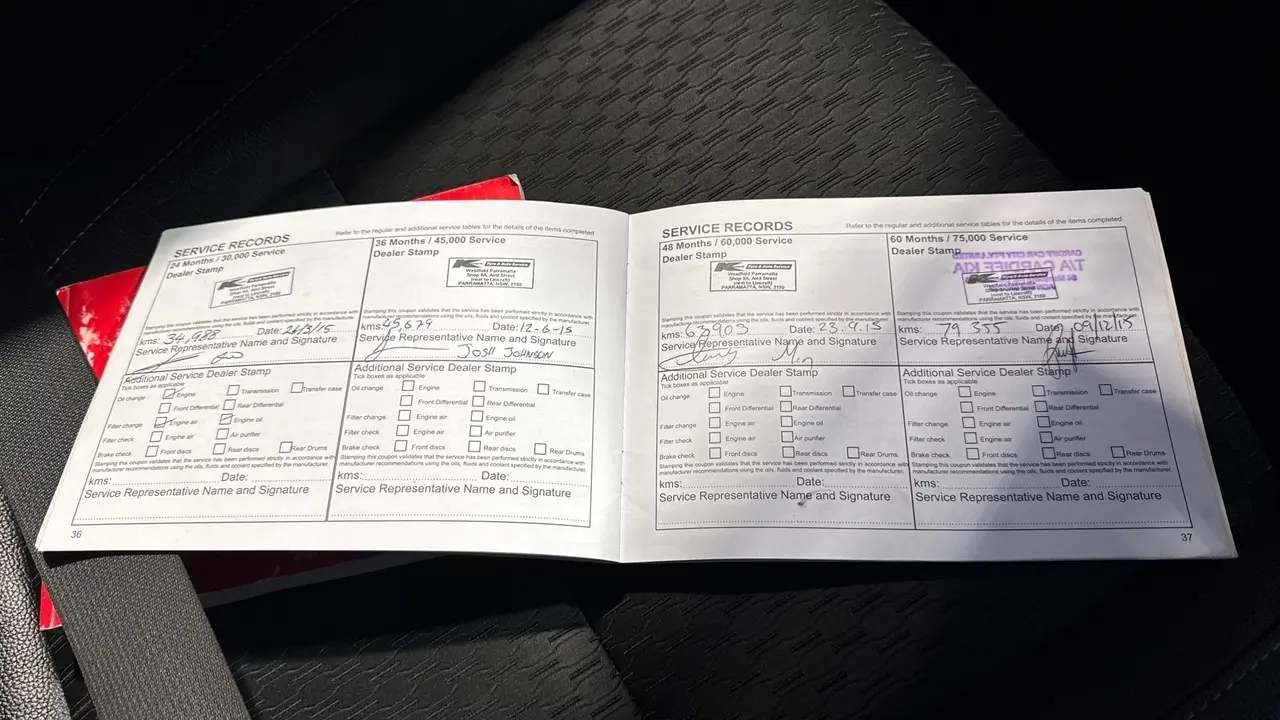 SERVICE RECORDS
Refer to the regular and additional service tables for the details of the items completed
24 Months / 30,000 Service
Dealer Stamp
K Tyre & Auto Service
Westfield Parramatta
Shop 9A, Aird Street
(next to Lincraft)
PARRAMATTA, NSW, 2150
Stamping this coupon validates that the service has been performed strictly in accordance with
manufacturer recommendations using the oils, fluids and coolant specified by the manufacturer.
kms: 34,988 Date: 26/3/15
Service Representative Name and Signature
Additional Service Dealer Stamp
Tick boxes as applicable
Oil change Engine Transmission Transfer case
Front Differential Rear Differential
Filter change Engine air Engine oil
Filter check Engine air Air purifier
Brake check Front discs Rear discs Rear Drums
Stamping this coupon validates that the service has been performed strictly in accordance with
manufacturer recommendations using the oils, fluids and coolant specified by the manufacturer.
kms: Date:
Service Representative Name and Signature
36
36 Months / 45,000 Service
Dealer Stamp
K Tyre & Auto Service
Westfield Parramatta
Shop 9A, Aird Street
(next to Lincraft)
PARRAMATTA, NSW, 2150
Stamping this coupon validates that the service has been performed strictly in accordance with
manufacturer recommendations using the oils, fluids and coolant specified by the manufacturer.
kms: 45,679 Date: 12-6-15
Service Representative Name and Signature
JOSH JOHNSON
Additional Service Dealer Stamp
Tick boxes as applicable
Oil change Engine Transmission Transfer case
Front Differential Rear Differential
Filter change Engine air Engine oil
Filter check Engine air Air purifier
Brake check Front discs Rear discs Rear Drums
Stamping this coupon validates that the service has been performed strictly in accordance with
manufacturer recommendations using the oils, fluids and coolant specified by the manufacturer.
kms: Date:
Service Representative Name and Signature
SERVICE RECORDS
Refer to the regular and additional service tables for the details of the items completed
48 Months / 60,000 Service
Dealer Stamp
K Tyre & Auto Service
Westfield Parramatta
Shop 9A, Aird Street
(next to Lincraft)
PARRAMATTA, NSW, 2150
Stamping this coupon validates that the service has been performed strictly in accordance with
manufacturer recommendations using the oils, fluids and coolant specified by the manufacturer.
kms: 63903 Date: 23.9.15
Service Representative Name and Signature
Additional Service Dealer Stamp
Tick boxes as applicable
Oil change Engine Transmission Transfer case
Front Differential Rear Differential
Filter change Engine air Engine oil
Filter check Engine air Air purifier
Brake check Front discs Rear discs Rear Drums
Stamping this coupon validates that the service has been performed strictly in accordance with
manufacturer recommendations using the oils, fluids and coolant specified by the manufacturer.
kms: Date:
Service Representative Name and Signature
60 Months / 75,000 Service
Dealer Stamp
CARDIFF CAR CITY PTY. LIMITED
T/A CARDIFF KIA
K Tyre & Auto Service
Westfield Parramatta
(next to Lincraft)
PARRAMATTA, NSW, 2150
Stamping this coupon validates that the service has been performed strictly in accordance with
manufacturer recommendations using the oils, fluids and coolant specified by the manufacturer.
kms: 79 355 Date: 09/12/15
Service Representative Name and Signature
Additional Service Dealer Stamp
Tick boxes as applicable
Oil change Engine Transmission Transfer case
Front Differential Rear Differential
Filter change Engine air Engine oil
Filter check Engine air Air purifier
Brake check Front discs Rear discs Rear Drums
Stamping this coupon validates that the service has been performed strictly in accordance with
manufacturer recommendations using the oils, fluids and coolant specified by the manufacturer.
kms: Date:
Service Representative Name and Signature
37